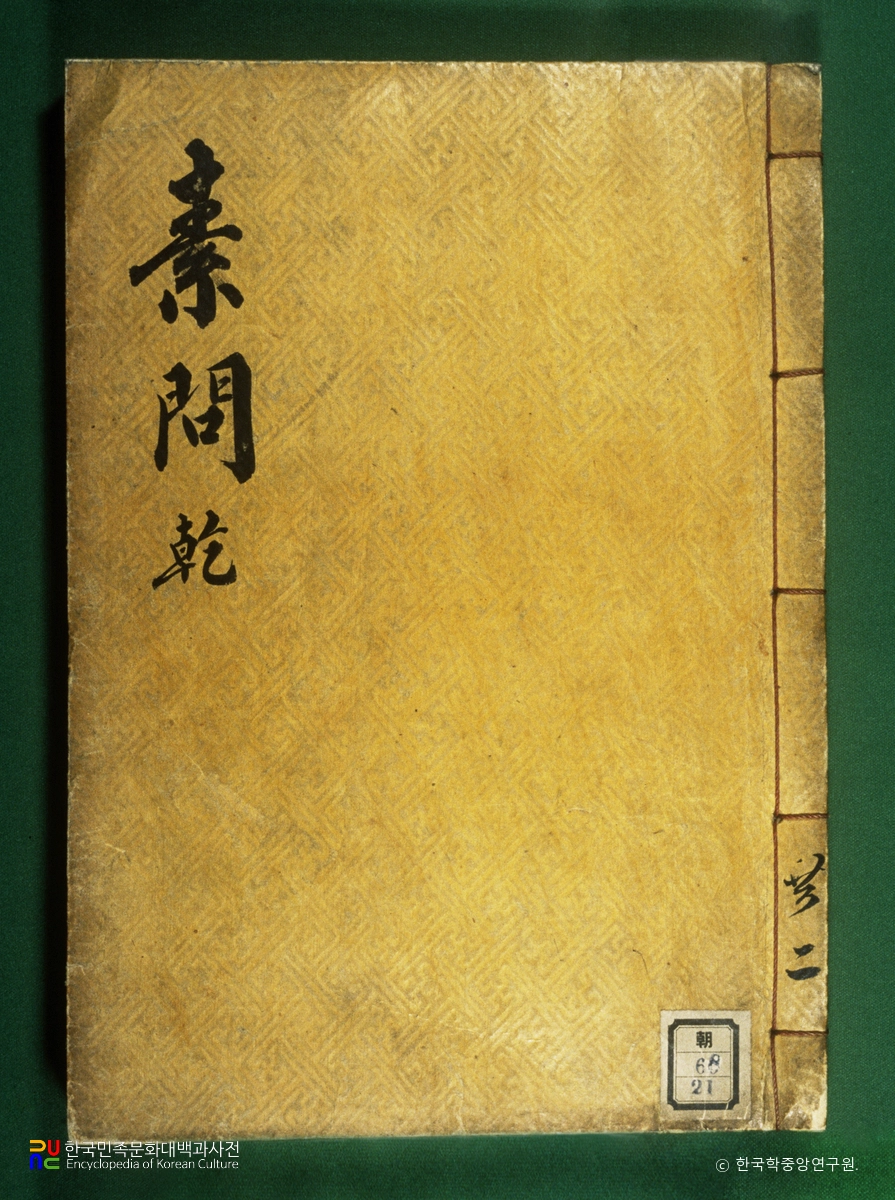 素問
乾
共二
朝
68
21
한국민족문화대백과사전
Encyclopedia of Korean Culture
ⓒ 한국학중앙연구원.